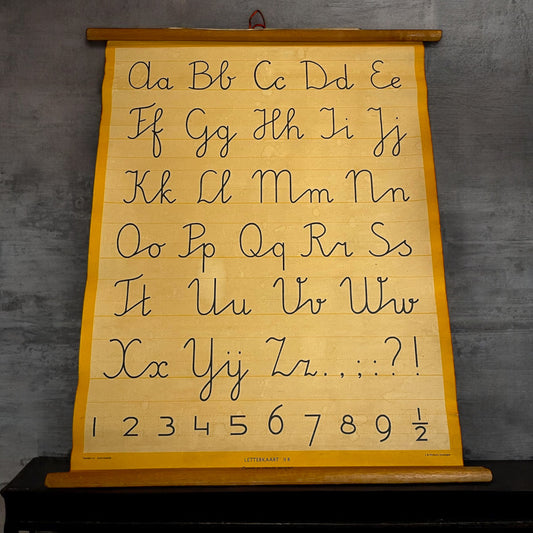 Aa Bb Cc Dd Ee
Ff Gg Hh Ii Jj
Kk Ll Mm Nn
Oo Pp Qq Rr Ss
Tt Uu Vv Ww
Xx IJij Zz . , ; : ? !
1 2 3 4 5 6 7 8 9 ½
LETTERKAART